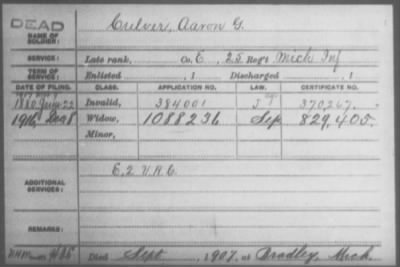 DEAD
NAME OF SOLDIER: Culver, Aaron G.
SERVICE: Late rank, Co. E, 25 Reg't Mich Inf
TERM OF SERVICE: Enlisted , 1 Discharged , 1
DATE OF FILING. CLASS. APPLICATION NO. LAW. CERTIFICATE NO.
1880 June 22 Invalid, 384001 370,267.
1916, Dec 8 Widow, 1088236 Sep. 829,405.
Minor,
ADDITIONAL SERVICES: E, 2 V.R.C.
REMARKS:
Died Sept. , 1907, at Bradley, Mich.